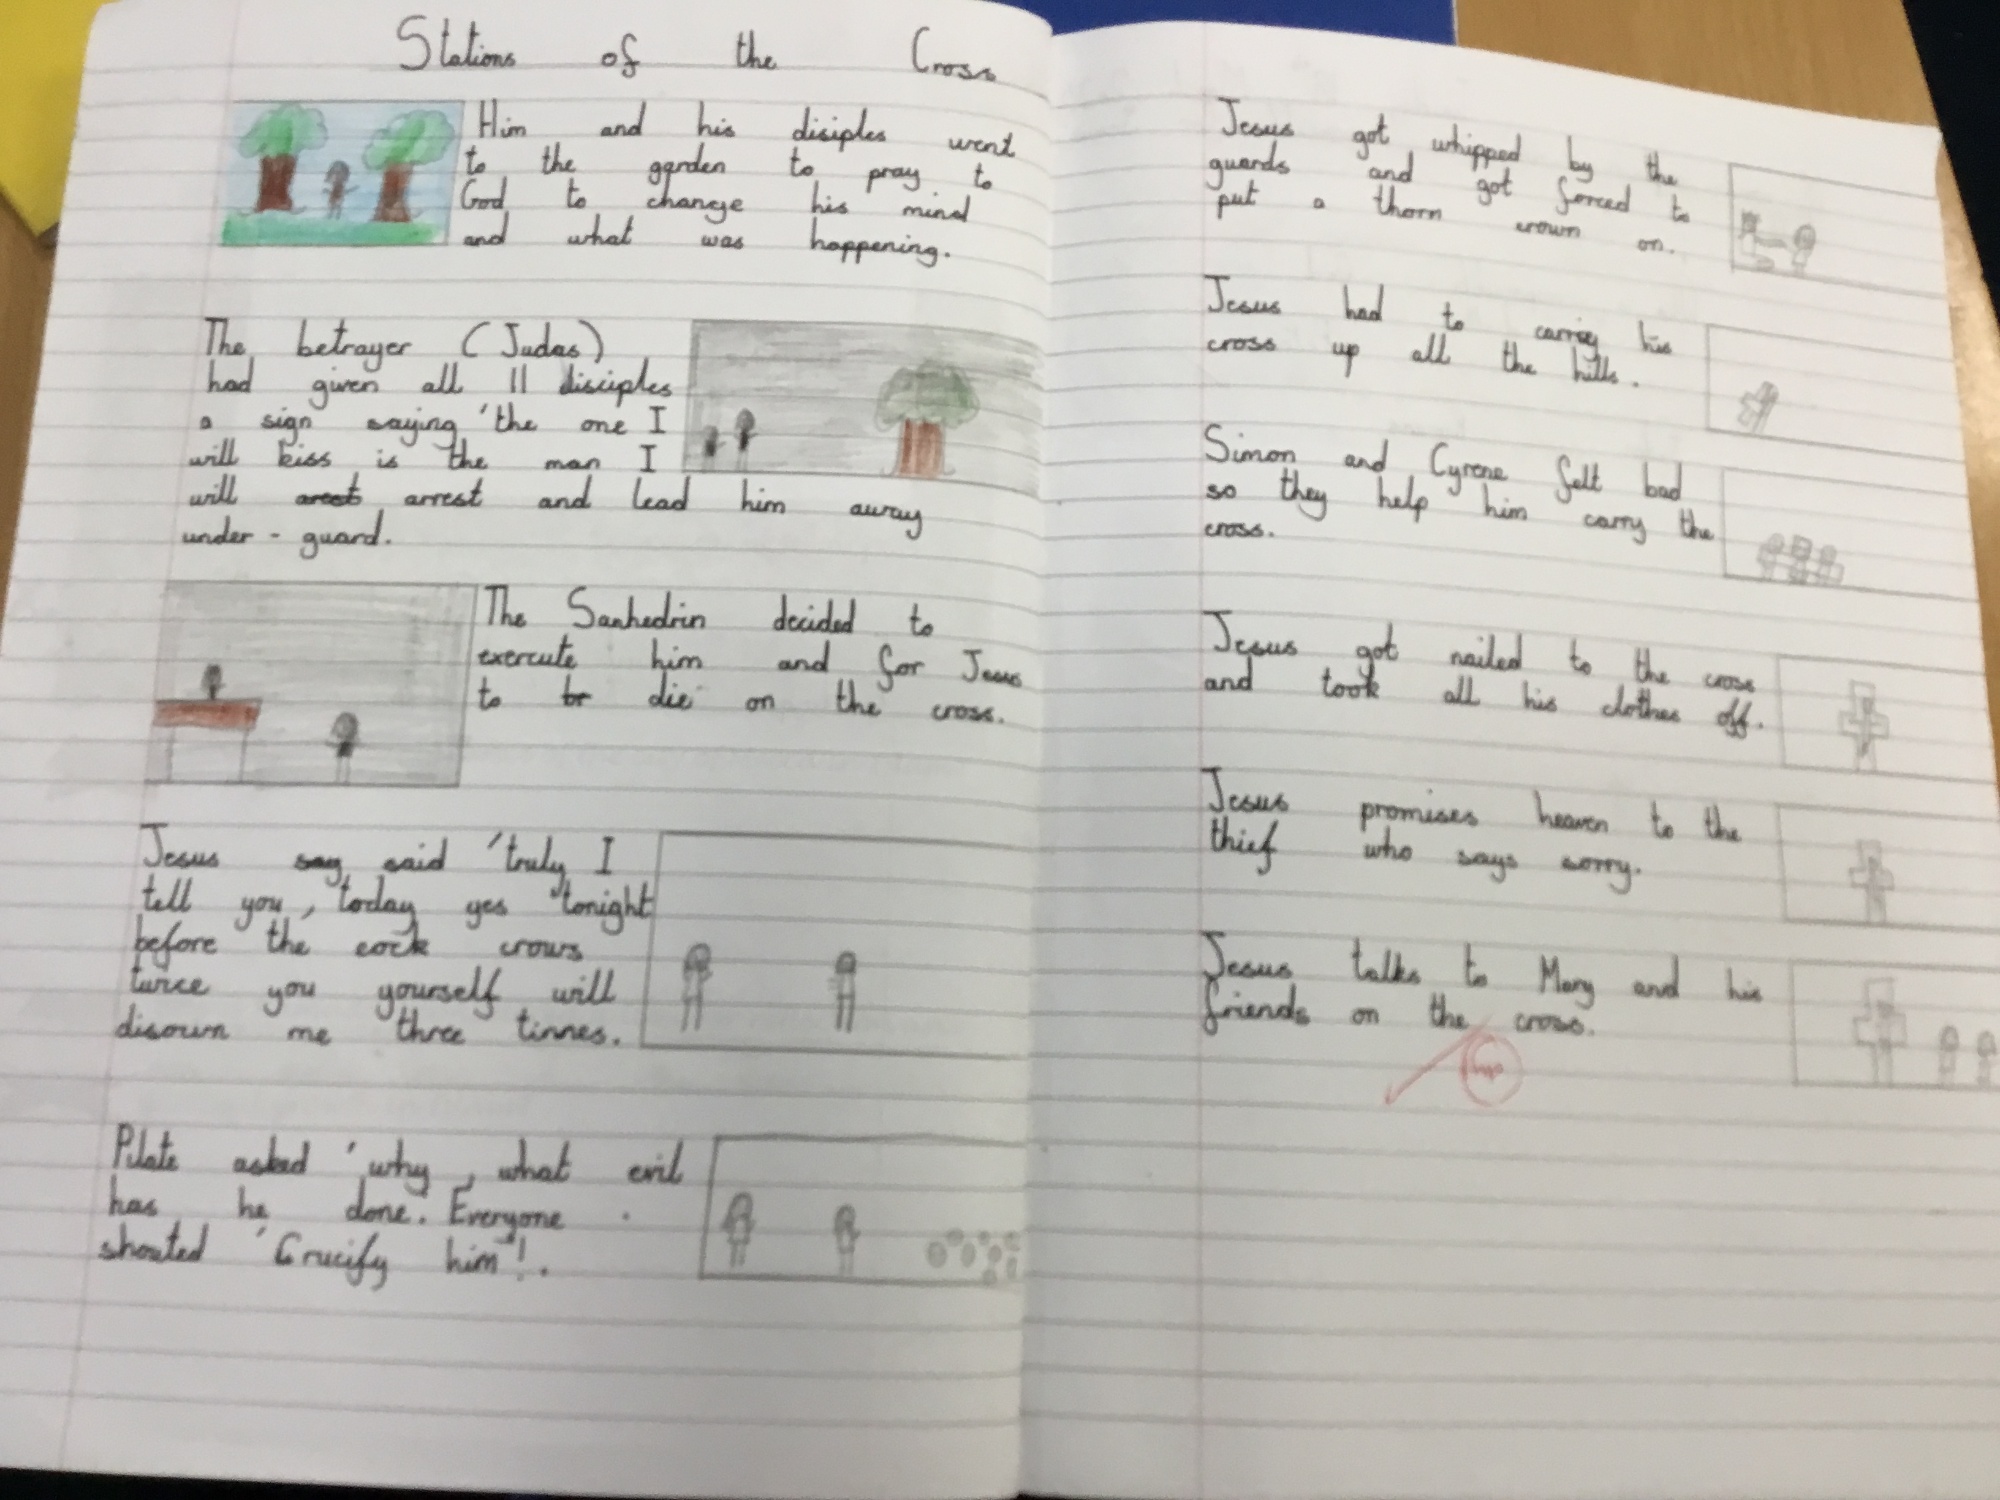 Stations of the Cross
Him and his disiples went
to the garden to pray to
God to change his mind
and what was happening.
The betrayer (Judas)
had given all 11 disciples
a sign saying 'the one I
will kiss is the man I
will arest arrest and lead him away
under - guard.
The Sanhedrin decided to
exercute him and for Jesus
to br die on the cross.
Jesus say said 'truly I
tell you, today yes tonight
before the cock crows
twice you yourself will
disown me three times.
Pilate asked 'why, what evil
has he done. Everyone
shouted 'Crucify him'!.
Jesus got whipped by the
guards and got forced to
put a thorn crown on.
Jesus had to carry his
cross up all the hills.
Simon and Cyrene felt bad
so they help him carry the
cross.
Jesus got nailed to the cross
and took all his clothes off.
Jesus promises heaven to the
thief who says sorry.
Jesus talks to Mary and his
friends on the cross.